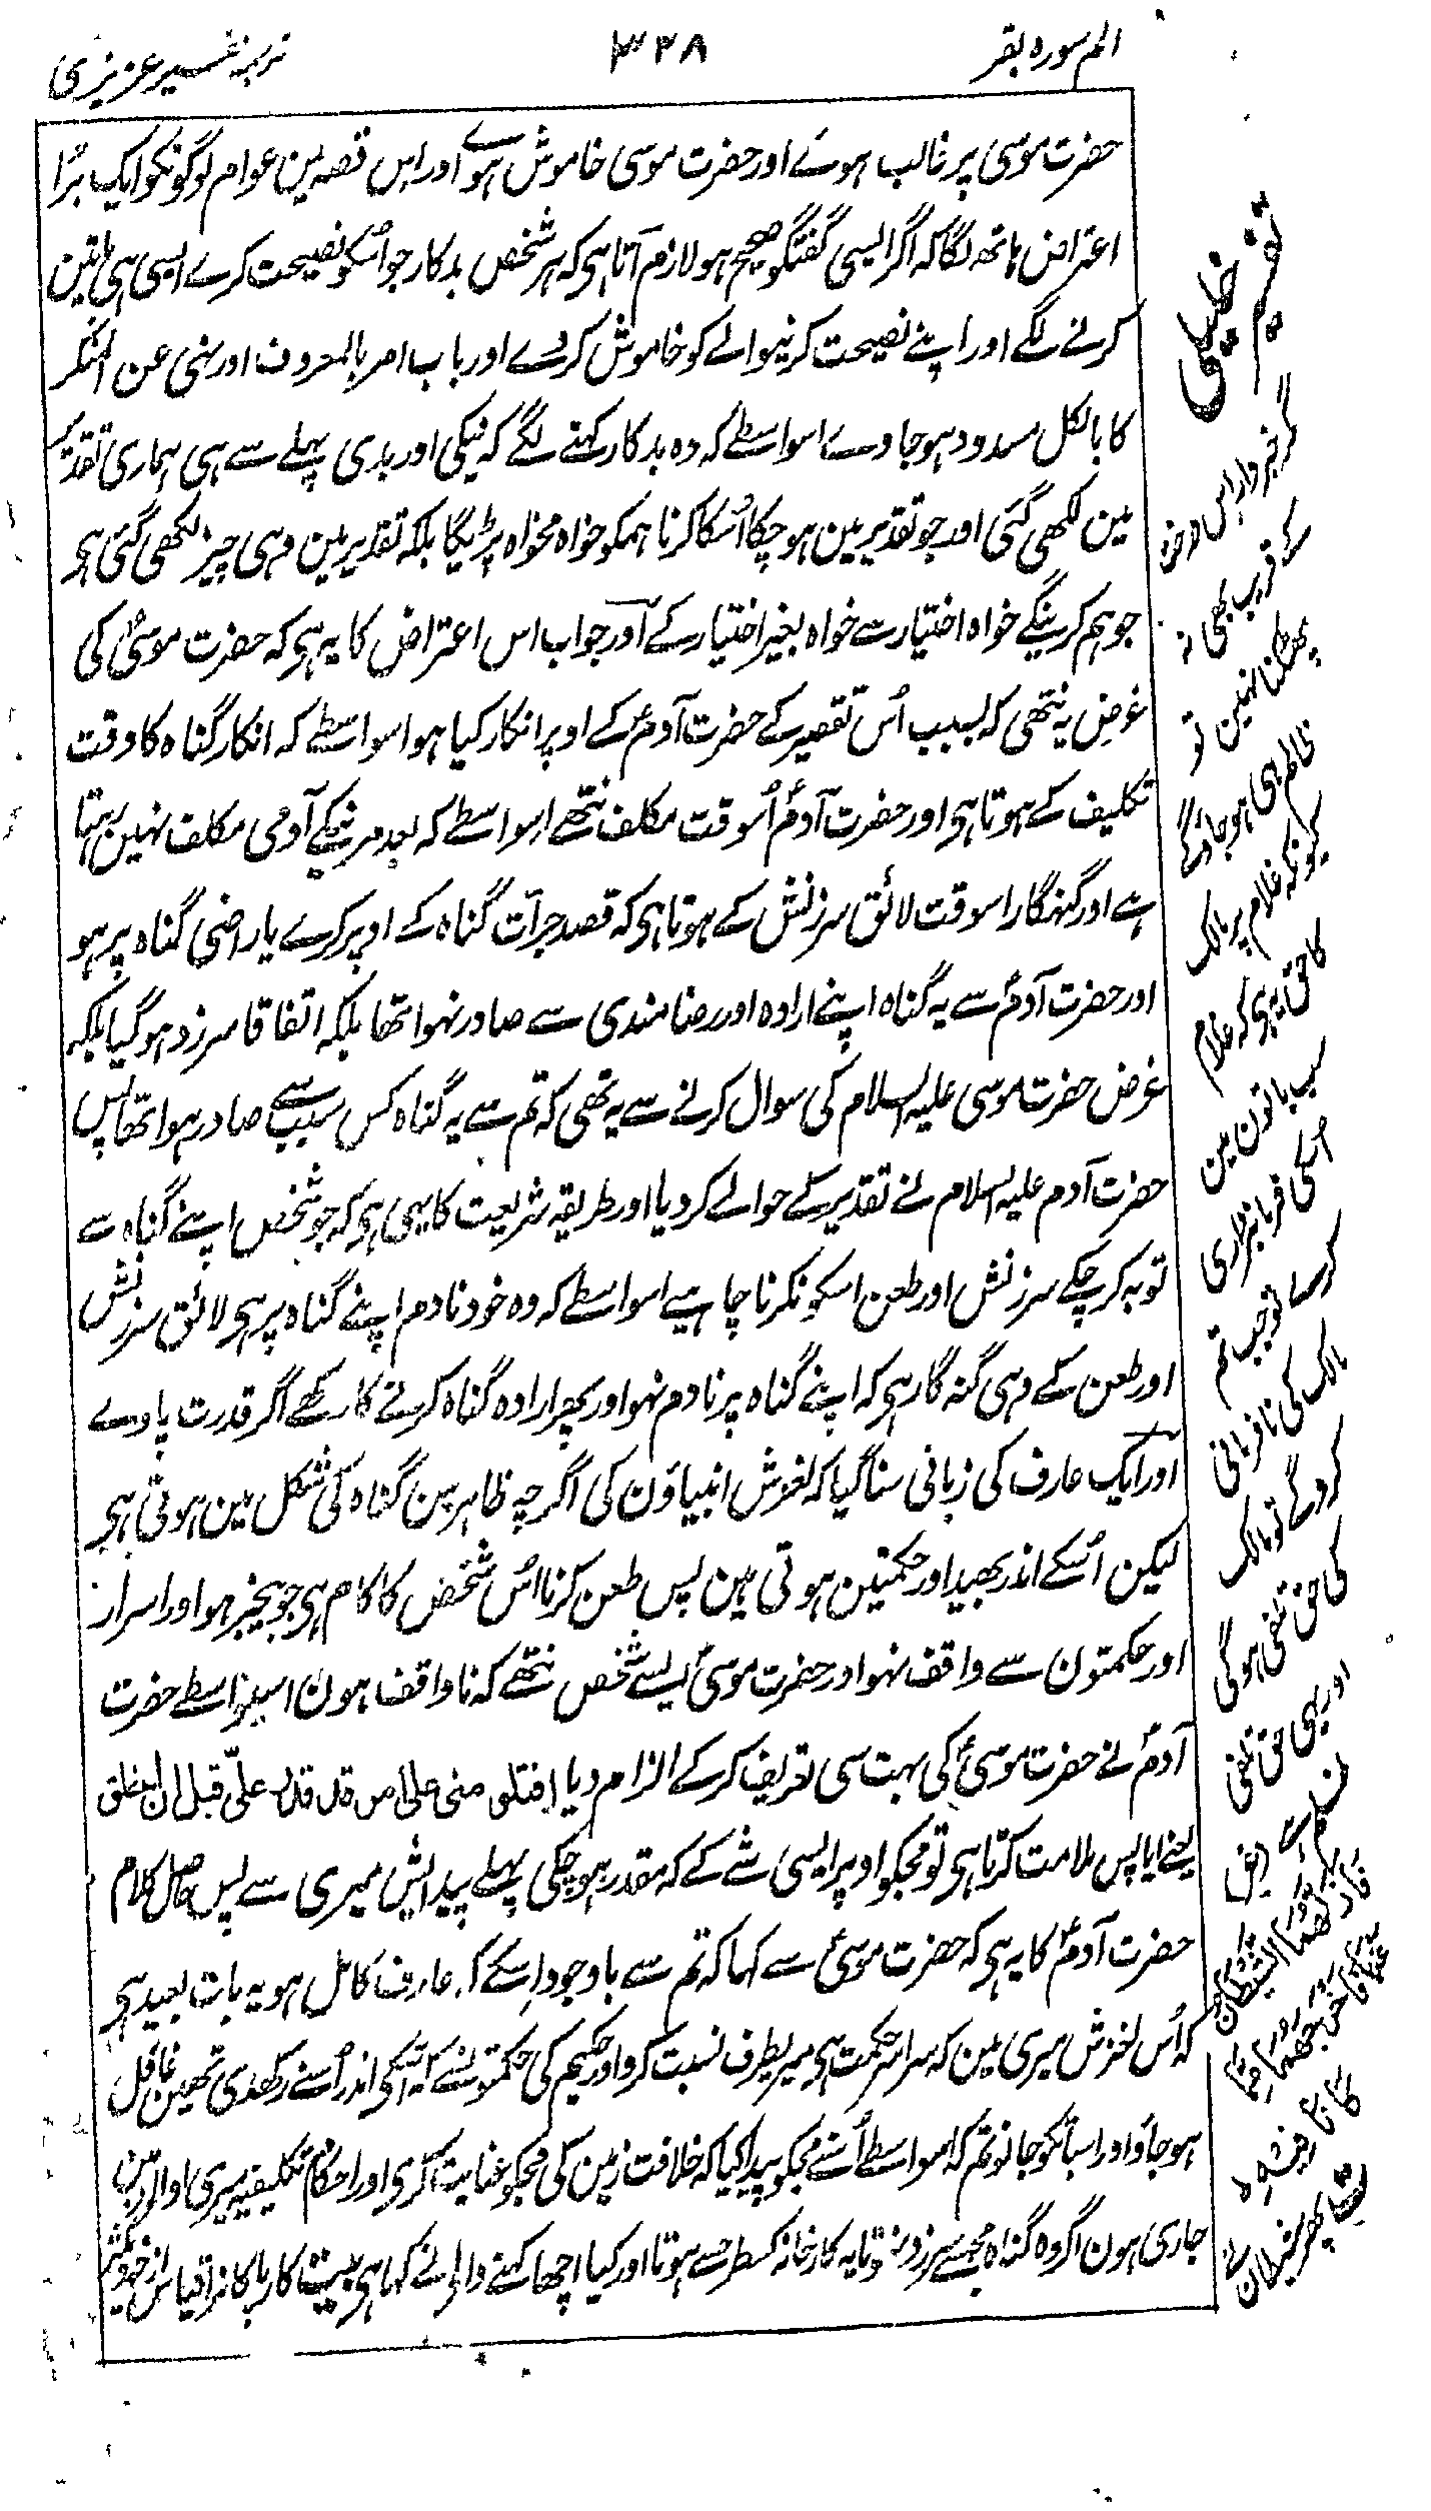 الم سورہ بقر
۳۲۸
ترجمہ تفسیر عزیزی
حضرت موسی پر غالب ہوئے اور حضرت موسی خاموش ہوے اور اس قصہ مین عوام لوگونکو ایک بڑا
اعتراض ہاتھ لگا کہ اگر ایسی گفتگو صحیح ہو لازم آتا ہی کہ ہر شخص بدکار جو اُسکو نصیحت کرے ایسی ہی باتین
کرنے لگے اور اپنے نصیحت کرنیوالے کو خاموش کردے اور باب امر بالمعروف اور نہی عن المنکر
کا بالکل مسدود ہو جاوے اسواسطے کہ وہ بدکار کہنے لگے کہ نیکی اور بدی پہلے سے ہی ہماری تقدیر
مین لکھی گئی اور جو تقدیر مین ہو چکا اُسکا کرنا ہمکو خواہ مخواہ پڑیگا بلکہ تقدیر مین وہی چیز لکھی گئی ہو
جو ہم کرینگے خواہ اختیار سے خواہ بغیر اختیار کے اور جواب اس اعتراض کا یہ ہی کہ حضرت موسیٰؑ کی
غرض یہ نتھی کہ بسبب اُس تقصیر کے حضرت آدمؑ کے اوپر انکار کیا ہو اسواسطے کہ انکار گناہ کا وقت
تکلیف کے ہوتا ہی اور حضرت آدمؑ اُسوقت مکلف نتھے اسواسطے کہ بعد مرنیکے آدمی مکلف نہین رہتا
ہے اور گنہگار اسوقت لائق سرزنش کے ہوتا ہی کہ قصد جرأت گناہ کے اوپر کرے یا راضی گناہ پر ہو
اور حضرت آدمؑ سے یہ گناہ اپنے ارادہ اور رضامندی سے صادر نہوا تھا بلکہ اتفاقا سرزد ہو گیا بلکہ
غرض حضرت موسی علیہ السلام کی سوال کرنے سے یہ تھی کہ تم سے یہ گناہ کس سبب سے صادر ہوا تھا پس
حضرت آدم علیہ السلام نے تقدیر کے حوالے کر دیا اور طریقہ شریعت کا یہی ہی کہ جو شخص اپنے گناہ سے
توبہ کر چکے سرزنش اور طعن اسکو نکرنا چاہیے اسواسطے کہ وہ خود نادم اپنے گناہ پر ہی لائق سرزنش
اور طعن کے وہی گنہ گار ہی کہ اپنے گناہ پر نادم نہو اور پھر ارادہ گناہ کرنے کا رکھے اگر قدرت پاوے
اور ایک عارف کی زبانی سنا گیا کہ لغزش انبیاؤن کی اگرچہ ظاہر مین گناہ کی شکل مین ہوتی ہی
لیکن اُسکے اندر بھید اور حکمتین ہوتی ہین پس طعن کرنا اُس شخص کا کام ہی جو بیخبر ہو اور اسرار
اور حکمتون سے واقف نہو اور حضرت موسیٰؑ ایسے شخص نتھے کہ ناواقف ہون اسیواسطے حضرت
آدمؑ نے حضرت موسیٰؑ کی بہت سی تعریف کر کے الزام دیا افتلومنی علی امر قد قدر علیّ قبل ان اخلق
یعنے ایا پس ملامت کرتا ہی تو مجکو اوپر ایسی شے کے کہ مقدر ہو چکی پہلے پیدایش میری سے پس حاصل کلام
حضرت آدمؑ کا یہ ہی کہ حضرت موسیٰؑ سے کہا کہ تم سے باوجود اسکے کہ عارف کامل ہو یہ بات بعید ہی
کہ اُس لغزش میری مین کہ سراسر حکمت ہی میریطرف نسبت کرو اور حکیم کی حکمتونسے کہ اسکی اندر اُسنے رکھدی تھین غافل
ہو جاؤ اور اسباتکو جانو تم کہ اسواسطے اُسنے مجکو پیدا کیا کہ خلافت زمین کی مجکو عنایت کری اور احکام تکلیفیہ میری اولاد مین
جاری ہون اگر وہ گناہ مجسے سرزد نہوتا یہ کارخانہ کسطرحسے ہوتا اور کیا اچھا کہنے والے نے کہا ہی بیت کار پاکانرا قیاس از خود مگیر
تفسیر خلیلی
کے قریب بھی نہ
پھٹکنا نہین تو
ظالم ہی ہو جاؤگے
کیونکہ غلام پر مالک
کا حق یہ ہی کہ غلام
سب باتون مین
اُسکی فرمانبرداری
کرے تو جب تم
مالک کی نافرمانی
کروگے تو مالک
کی حق تلفی ہوگی
اور یہی حق تلفی
ظلم ہے
فَاَزَلَّهُمَا الشَّيْطٰنُ
عَنْهَا فَاَخْرَجَهُمَا مِمَّا
كَانَا فِيْهِ